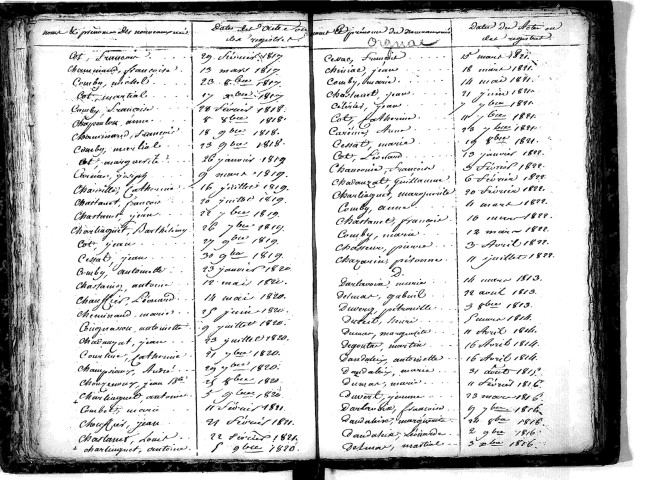 noms & prénoms des nouveaunés
Dates des Actes ou des registres
Cot, françois 29 février 1817
Chauminard, françoise 13 mars 1817
Comby, michel 23 8bre 1817
Cot, martial 17 xbre 1817
Comby, françoise 28 février 1818.
Chapoulou, anne 8 8bre 1818.
Chauminard, françois 18 9bre 1818.
Comby, martial 23 9bre 1818.
Cot, marguerite 26 janvier 1819
joseph 9 mars 1819.
Chanville, Catherine 16 juillet 1819.
Chastanet, françois 20 juillet 1819.
Chastanet, jean 22 7bre 1819.
Charlinguet, Barthélemy 26 7bre 1819.
Cot, jean 27 9bre 1819.
Cessat, jean 30 9bre 1819.
Comby, antoinette 23 janvier 1820
Chassaing, antoine 12 mai 1820.
Chauffier, Léonard 14 mai 1820.
Cheminaud, marie 25 juin 1820.
antoinette 9 juillet 1820.
Chadauzat, jean 23 juillet 1820.
Catherine 21 7bre 1820.
André 29 7bre 1820.
jean Bte 25 8bre 1820.
Charlinguet, antoine 5 9bre 1820
Combet, marie 11 février 1821.
Chauffier, jean 21 février 1821.
Chastanet, Louis 22 février 1821.
Charlinguet, antoine 5 9bre 1820
noms & prénoms des nouveaunés
Dates des Actes ou des registres
Orgnac
Cessac, françois 15 mars 1821.
jean 18 mars 1821.
Comby, marie 14 mai 1821.
Chastanet, jean 21 juin 1821.
jean 7 7bre 1821.
Cot, Catherine 11 7bre 1821.
Anne 23 7bre 1821.
Cessat, marie 19 8bre 1821.
Cot, Léonard 13 janvier 1822.
françois 5 février 1822.
Chadauzat, guillaume 6 février 1822.
Charlinguet, marguerite 20 février 1822.
Comby, anne 11 mars 1822.
Chastanet, françois 16 mars 1822.
Comby, marie 12 mars 1822.
Chasseur, pierre 3 avril 1822.
11 juillet 1822.
D.
Darlavoix, marie 14 mars 1813.
Delmas, gabriel 22 avril 1813.
pétronille 3 8bre 1813.
5 mars 1814.
Dumas, marguerite 11 avril 1814.
Degoutas, martin 16 avril 1814.
Daudaleix, antoinette 16 avril 1814.
Daudaleix, marie 31 août 1815.
Dumas, marie 11 février 1816.
Duvert, jeanne 23 mars 1816.
Darlavoix, françoise 9 7bre 1816.
Daudaleix, marguerite 26 8bre 1816.
Daudaleix, Léonarde 2 9bre 1816.
Delmas, martial 3 xbre 1816.